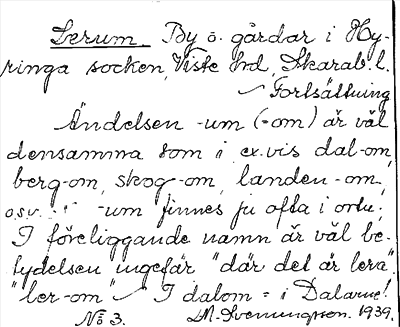 Lerum. By o. gårdar i Hy-
ringa socken, Viste hrd, Skarab. l.
Fortsättning
Ändelsen -um (-om) är väl
densamma som i ex.vis dal-om,
berg-om, skog-om, landen-om,
o.s.v. -um finnes ju ofta i ortn.;
I föreliggande namn är väl be-
tydelsen ungefär "där det är lera"
"ler-om" I dalom = i Dalarne!
No 3. M. Svenungson. 1939.